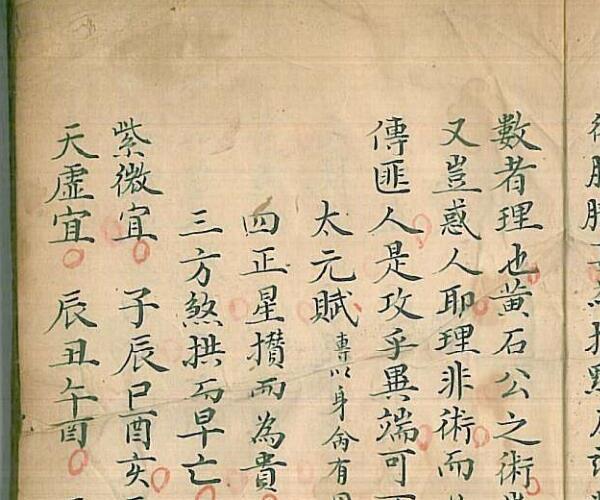 數者理也黃石公之術
又豈惑人耶理非術而
傳匪人是攻乎異端可
太元賦專以身命有
四正星攢而為貴
三方煞拱而早亡
紫微宜子辰巳酉亥
天虛宜辰丑午酉